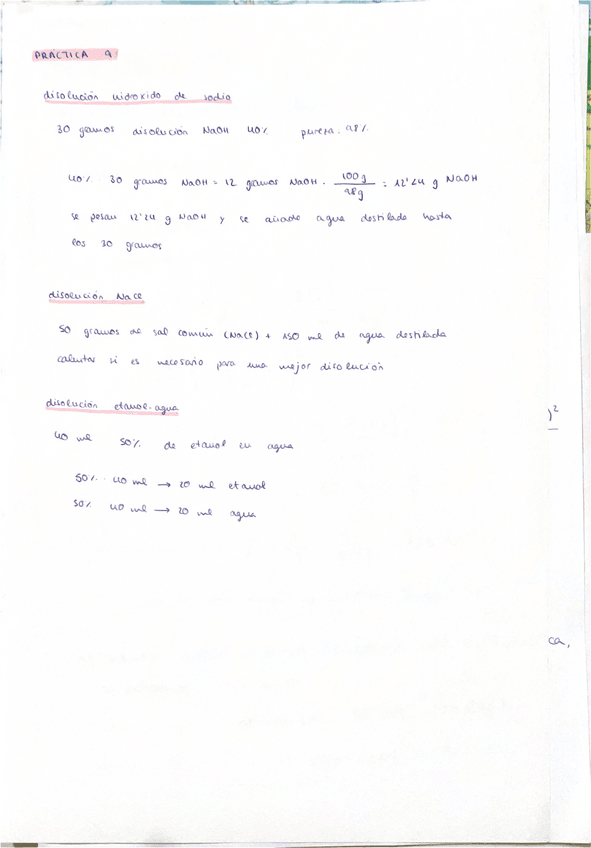 PRÁCTICA 9
disolución hidroxido de sodio
30 gramos disolución NaOH 40% pureza: 98%
40% · 30 gramos NaOH = 12 gramos NaOH · 100g / 98g = 12'24 g NaOH
se pesan 12'24 g NaOH y se añade agua destilada hasta
los 30 gramos
disolución NaCl
50 gramos de sal común (NaCl) + 150 ml de agua destilada
calentar si es necesario para una mejor disolución
disolución etanol-agua
)²
40 ml 50% de etanol en agua
50% · 40 ml → 20 ml etanol
50% 40 ml → 20 ml agua
ca,